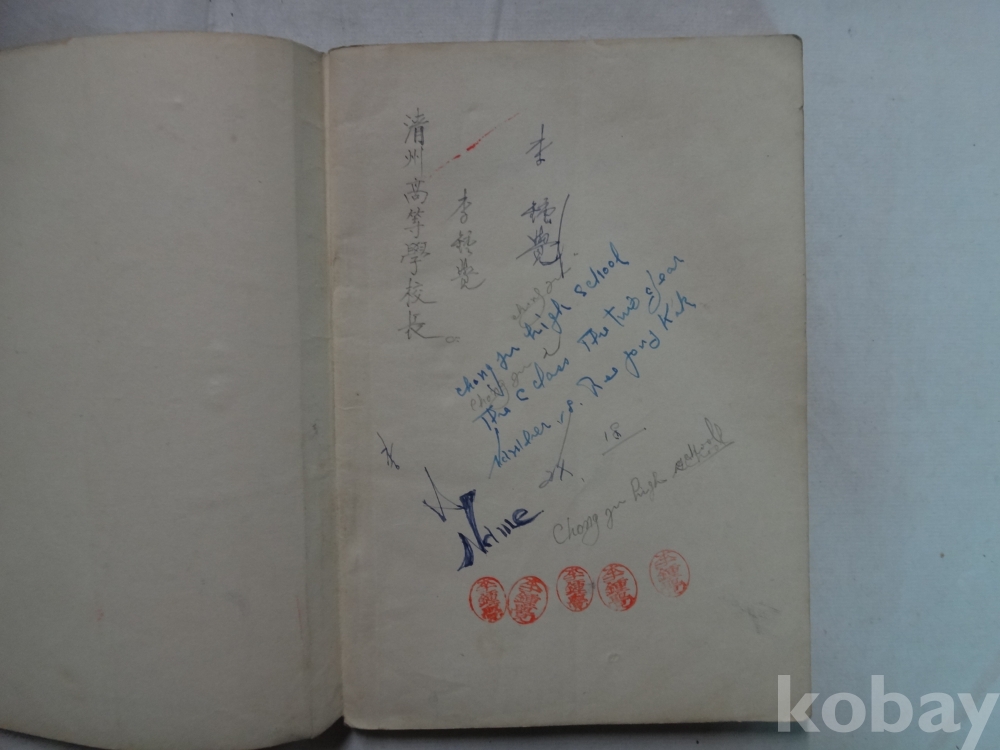 清州高等學校長。
李鍾覺
李
鍾覺
chongju
chong ju high school
chong ju
The C class The two year
Number 18. Ree jong Kak
18
李
Name
Chong ju high school
kobay